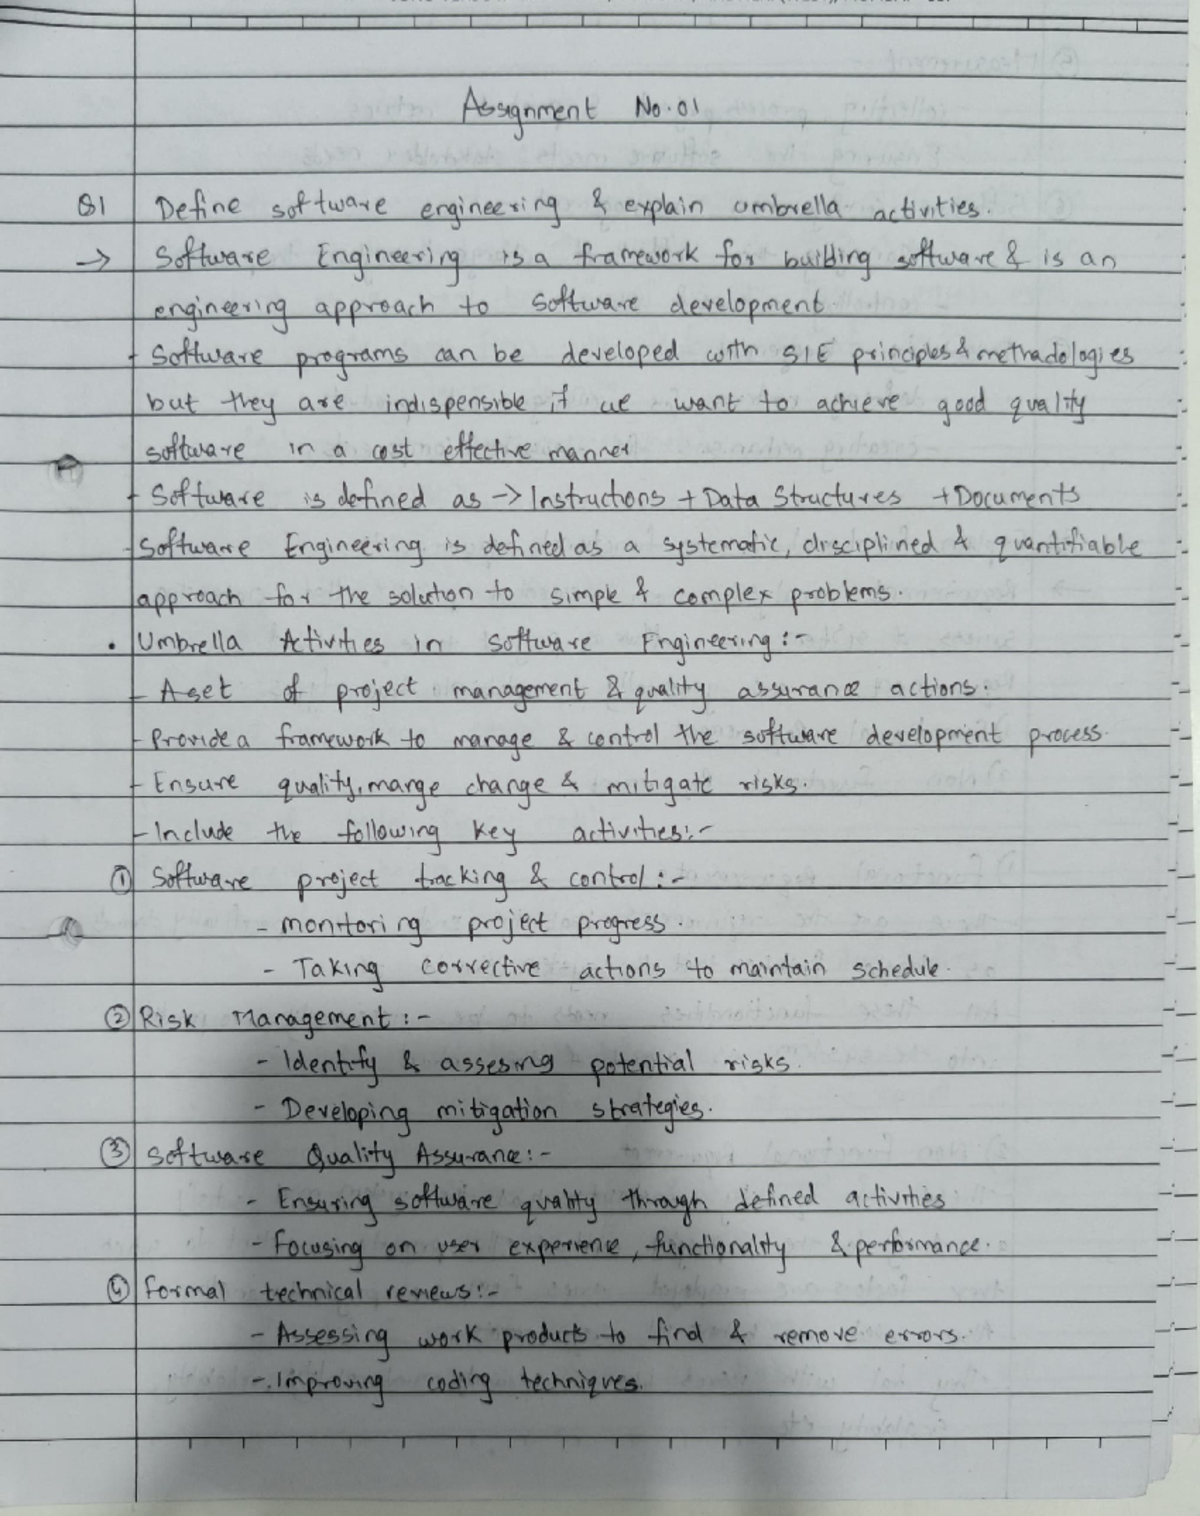 Assignment No.01
Q1 Define software engineering & explain umbrella activities.
→ Software Engineering is a framework for building software & is an
engineering approach to software development
- Software programs can be developed with S/E principles & methadologies
but they are indispensible if we want to achieve good quality
software in a cost effective manner
- Software is defined as -> Instructions + Data Structures + Documents
- Software Engineering is defined as a systematic, disciplined & quantifiable
approach for the solution to simple & complex problems.
• Umbrella Activities in Software Engineering :-
- A set of project management & quality assurance actions.
- Provide a framework to manage & control the software development process.
- Ensure quality, marge change & mitigate risks.
- Include the following key activities:-
① Software project tracking & control :-
- monitoring project progress.
- Taking corrective actions to maintain schedule.
② Risk Management :-
- Identify & assesing potential risks.
- Developing mitigation strategies.
③ Software Quality Assurance :-
- Ensuring software quality through defined activities
- Focusing on user experience, functionality & performance.
④ Formal technical reviews :-
- Assessing work products to find & remove errors.
- Improving coding techniques.